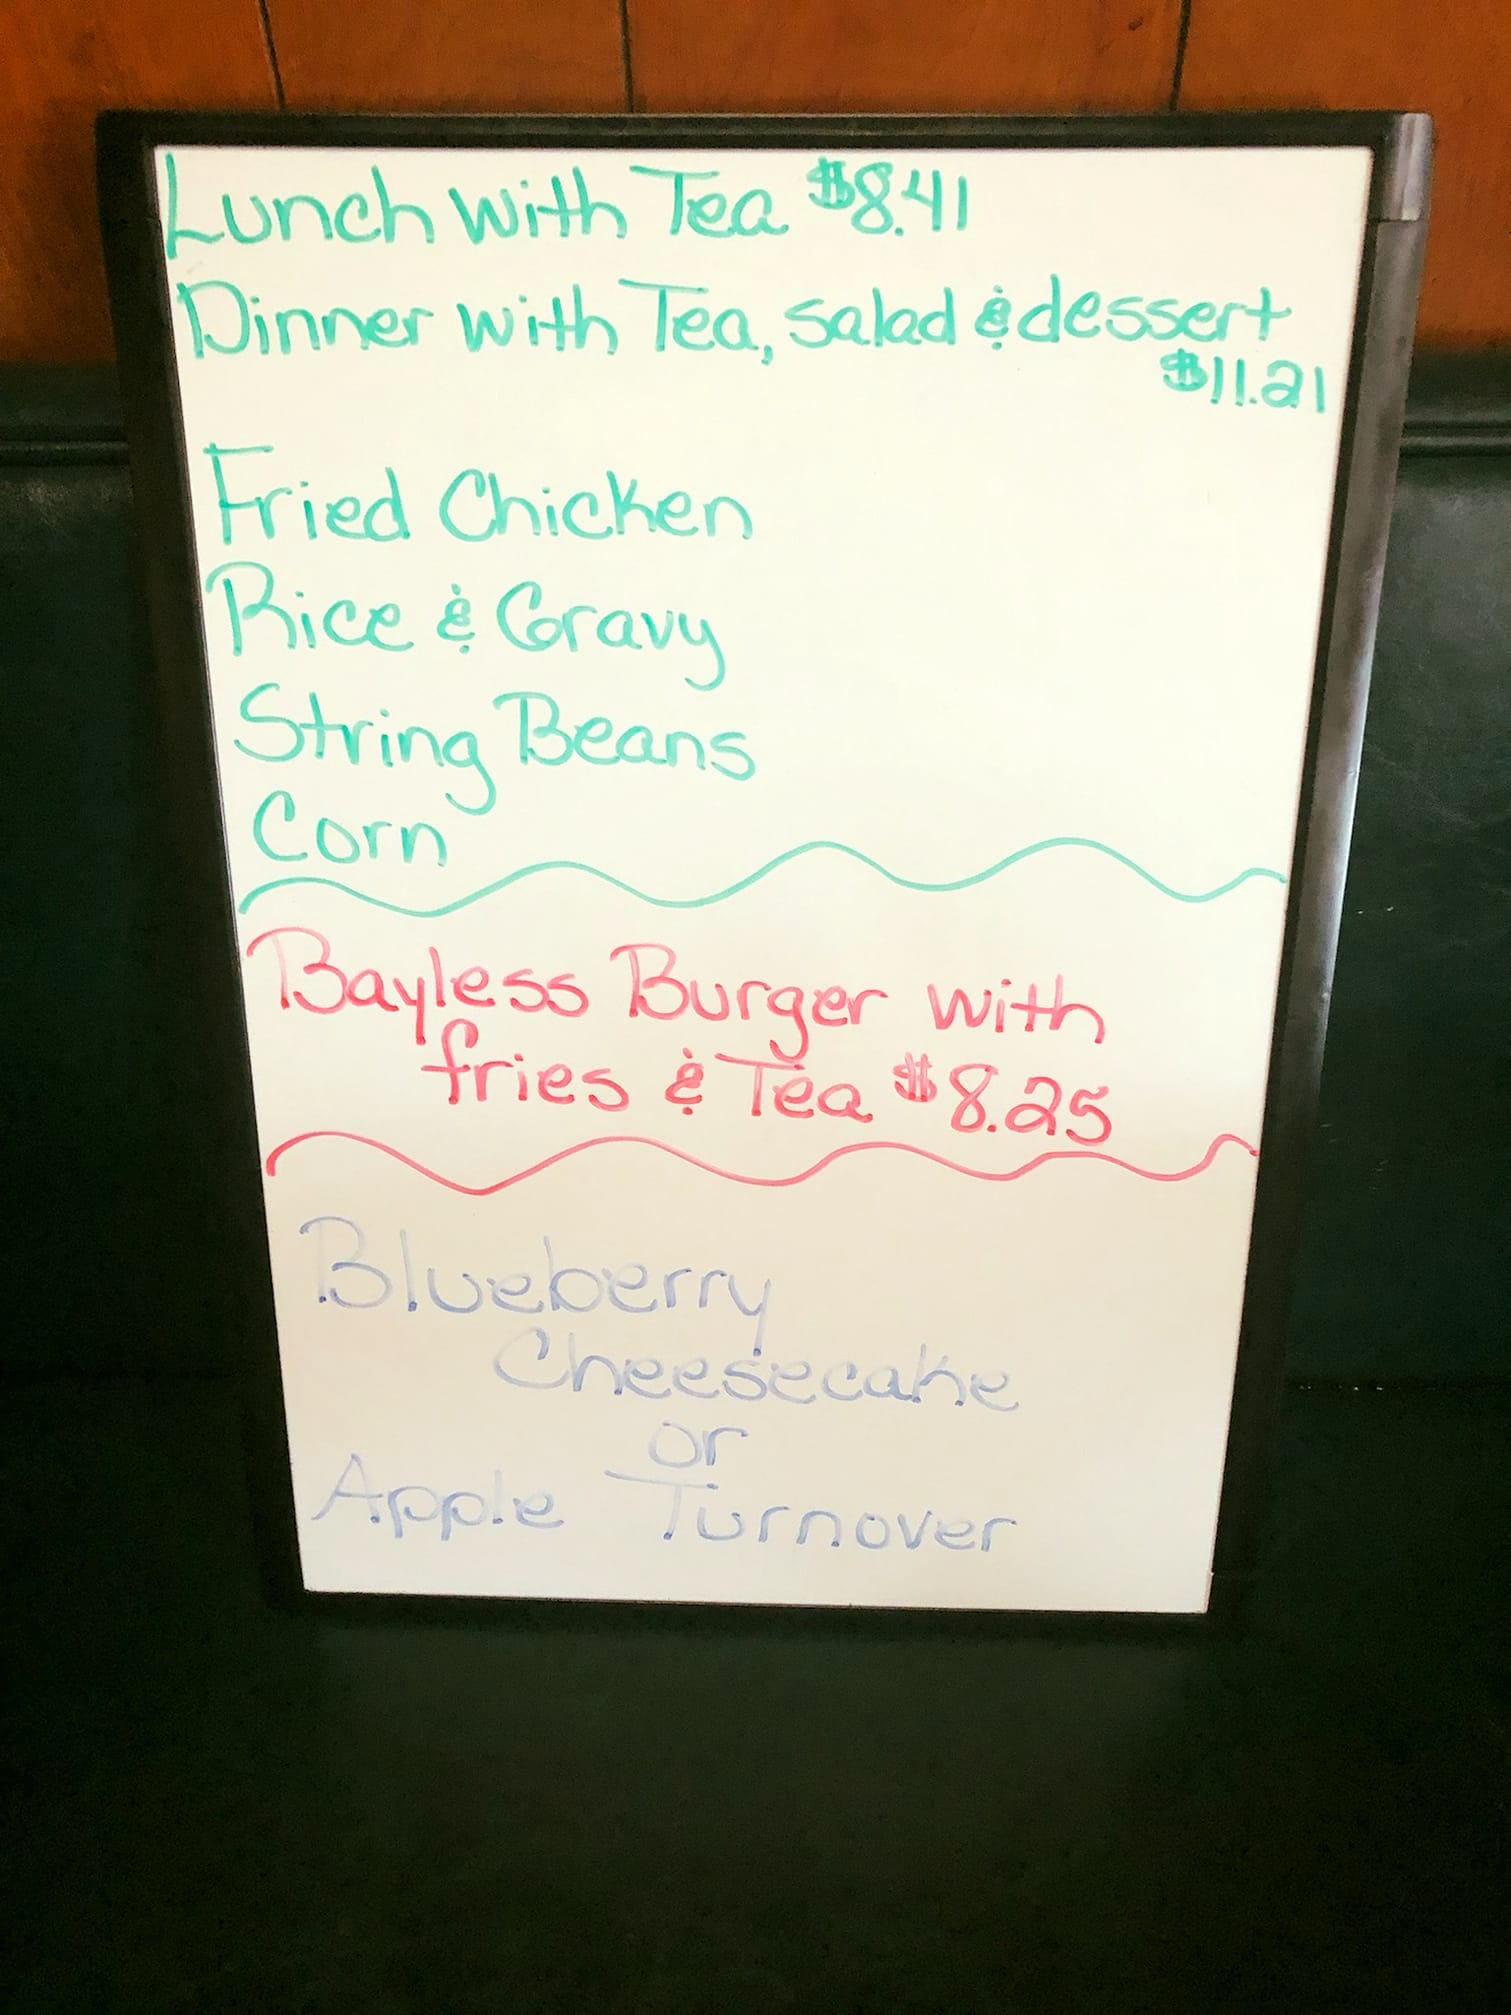 Lunch with Tea $8.41
Dinner with Tea, salad & dessert
$11.21
Fried Chicken
Rice & Gravy
String Beans
Corn
Bayless Burger with
fries & Tea $8.25
Blueberry
Cheesecake
or
Apple Turnover